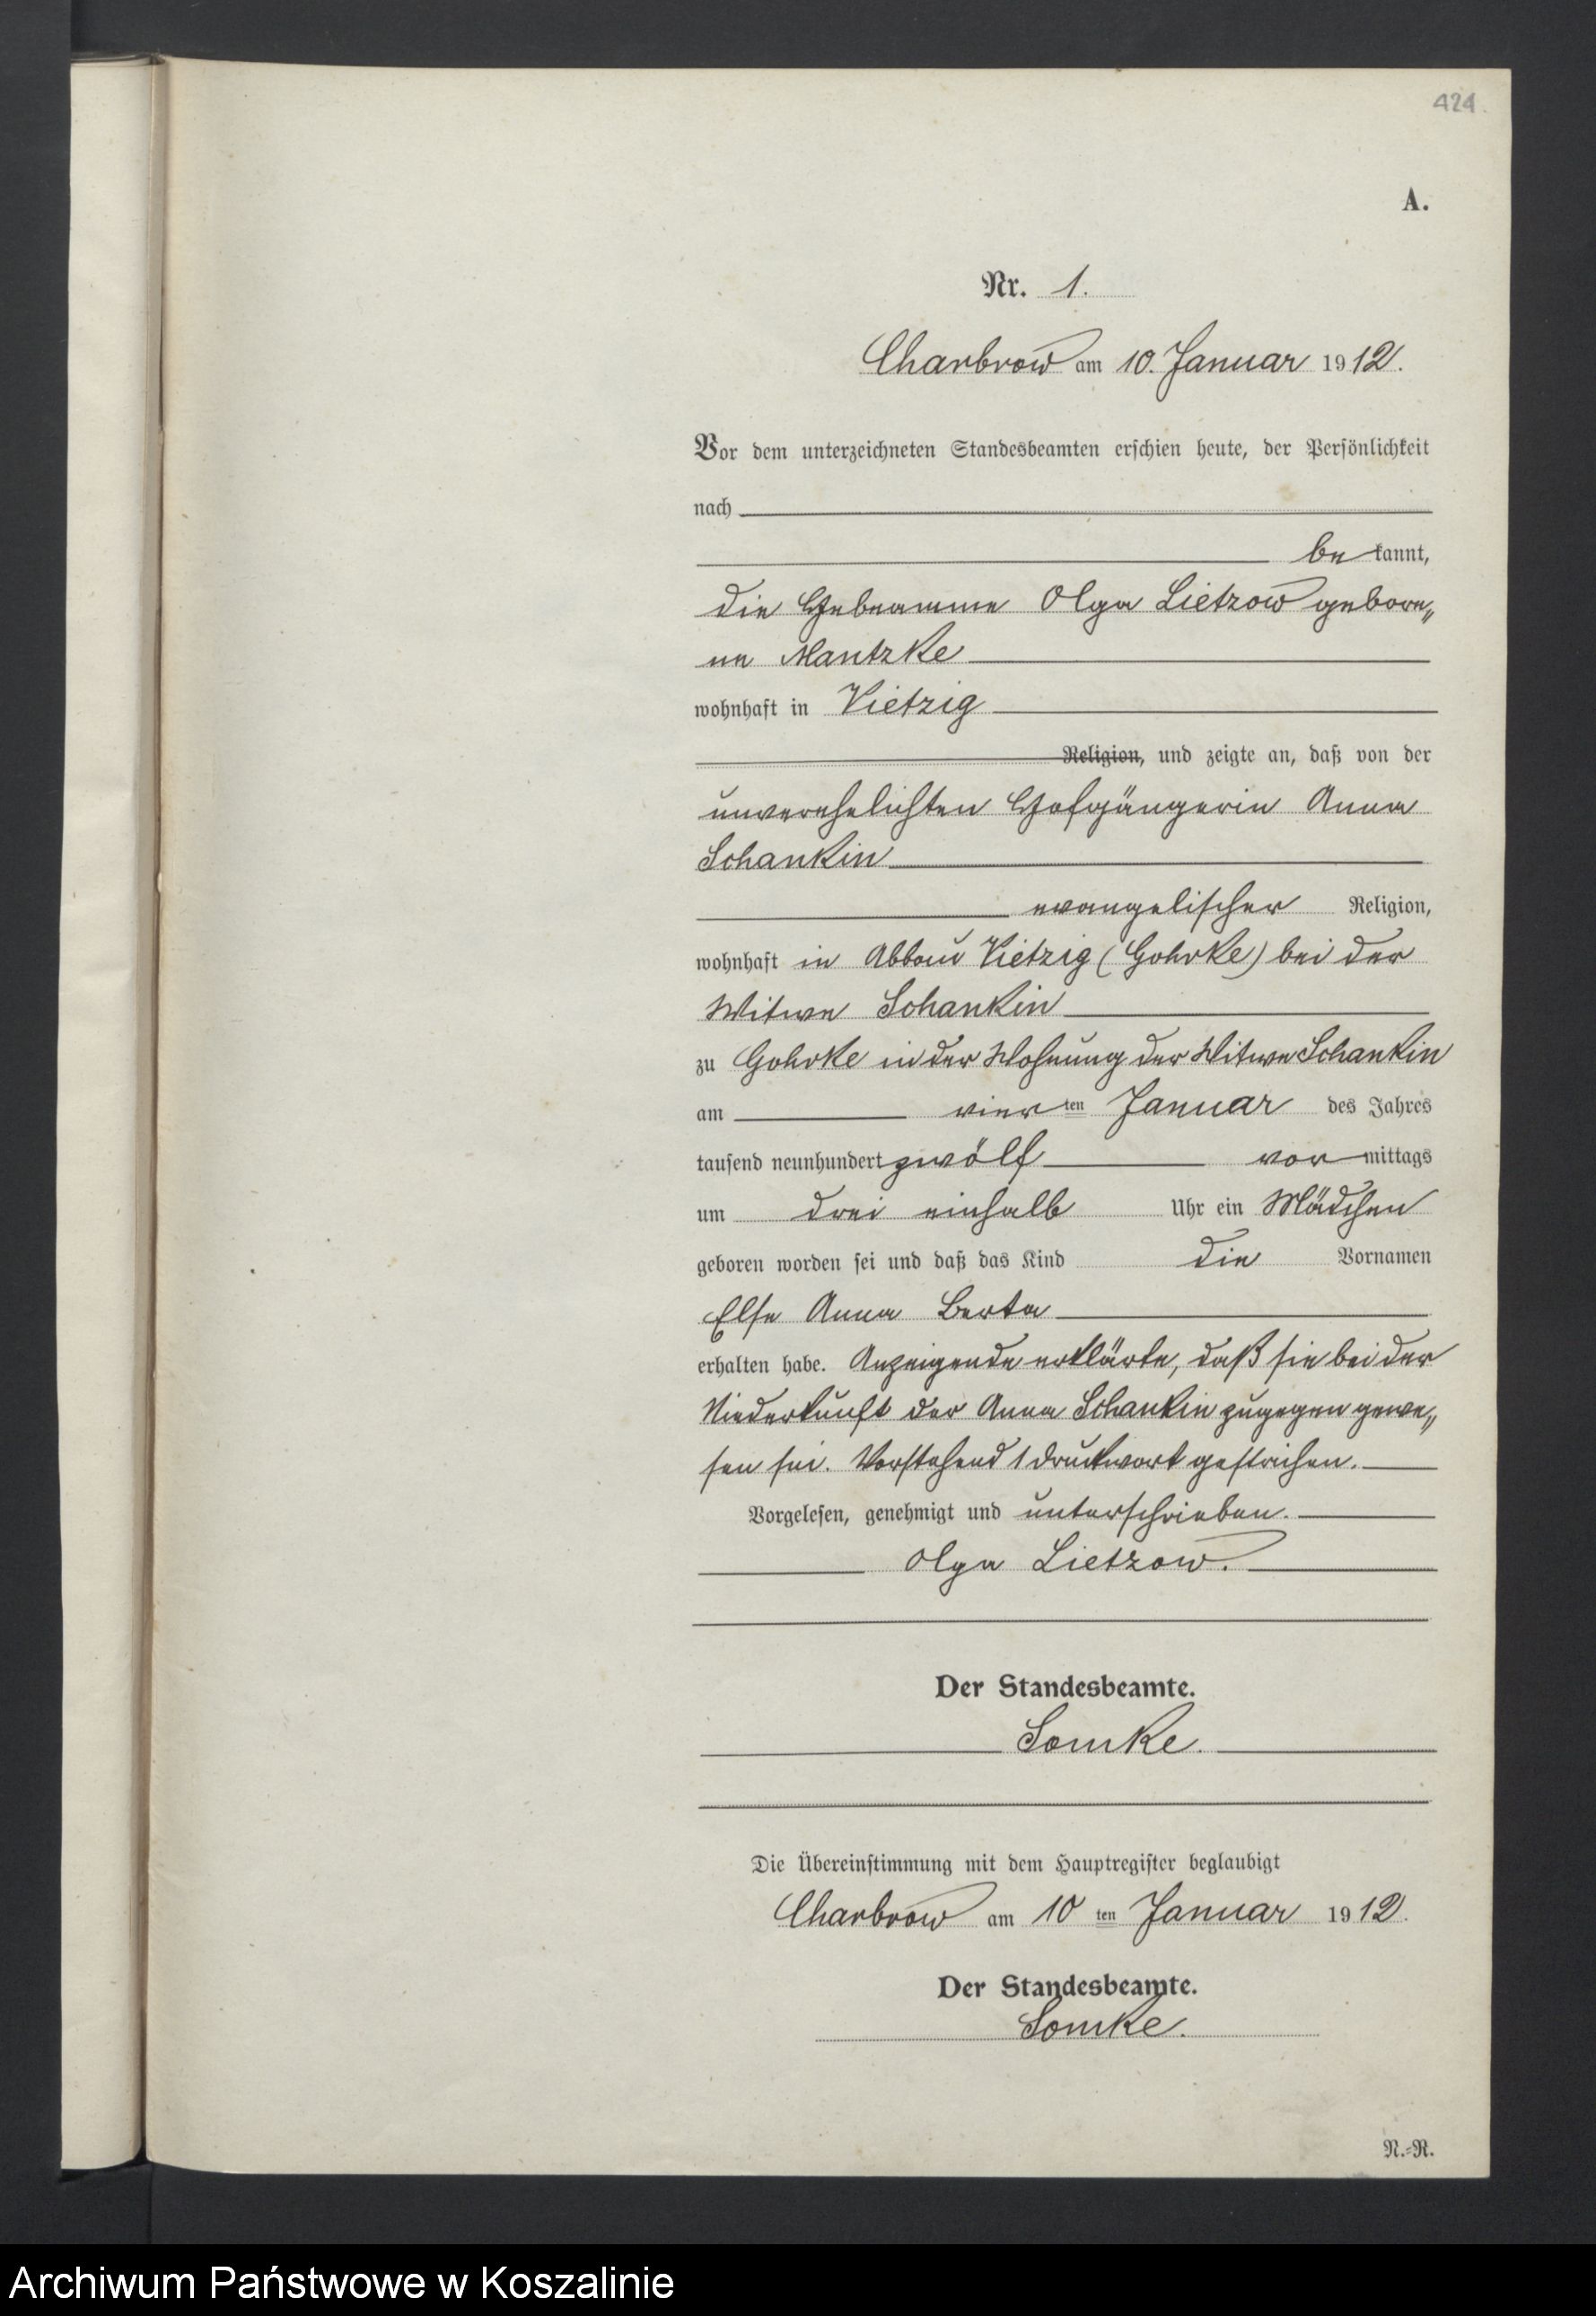 424.
A.
Nr. 1.
Charbrow am 10. Januar 1912.
Vor dem unterzeichneten Standesbeamten erschien heute, der Persönlichkeit
nach
be kannt,
die Hebeamme Olga Lietzow gebore„
ne Mantzke
wohnhaft in Vietzig
Religion, und zeigte an, daß von der
unverehelichten Hofgängerin Anna
Schankin
evangelischer Religion,
wohnhaft in Abbau Vietzig (Gohrke) bei der
Witwe Schankin
zu Gohrke in der Wohnung der Witwe Schankin
am vier ten Januar des Jahres
tausend neunhundert zwölf vor mittags
um drei einhalb Uhr ein Mädchen
geboren worden sei und daß das Kind die Vornamen
Else Anna Berta
erhalten habe. Anzeigende erklärte, daß sie bei der
Niederkunft der Anna Schankin zugegen gewe„
sen sei. Vorstehend 1 Druckwort gestrichen.
Vorgelesen, genehmigt und unterschrieben.
Olga Lietzow.
Der Standesbeamte.
Somke.
Die Übereinstimmung mit dem Hauptregister beglaubigt
Charbrow am 10 ten Januar 1912.
Der Standesbeamte.
Somke.
N.=R.
Archiwum Państwowe w Koszalinie